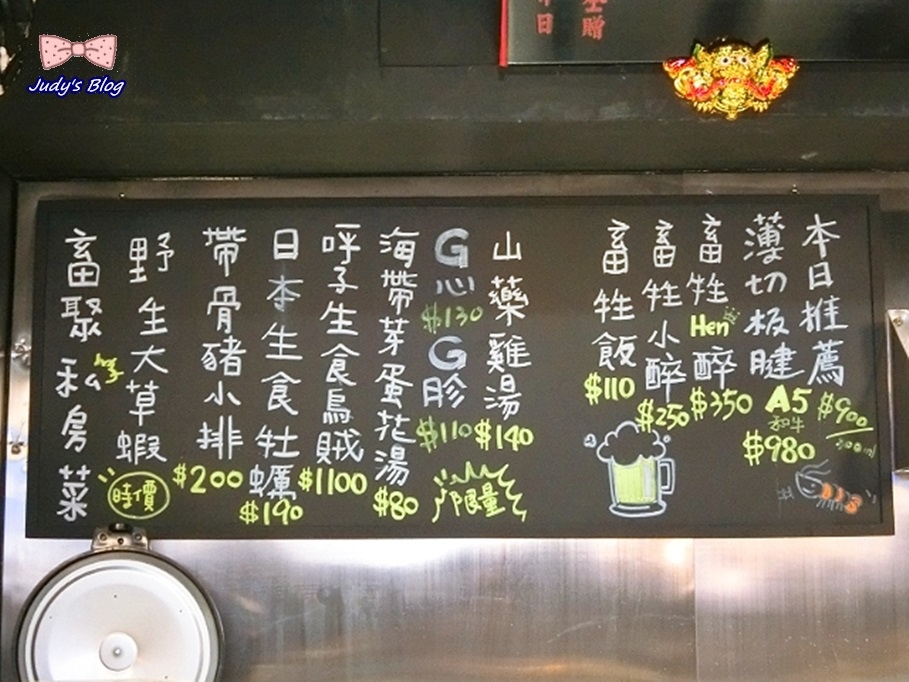 Judy's Blog
本日推薦 $900
薄切板腱 A5 和牛 $980
畜牲Hen醉 $350
畜牲小醉 $250
畜牲飯 $110
山藥雞湯 $140
G心 $130
G胗 $110
限量
海帶芽蛋花湯 $80
呼子生食烏賊 $1100
日本生食牡蠣 $190
帶骨豬小排 $200
野生大草蝦 時價
畜聚私房菜